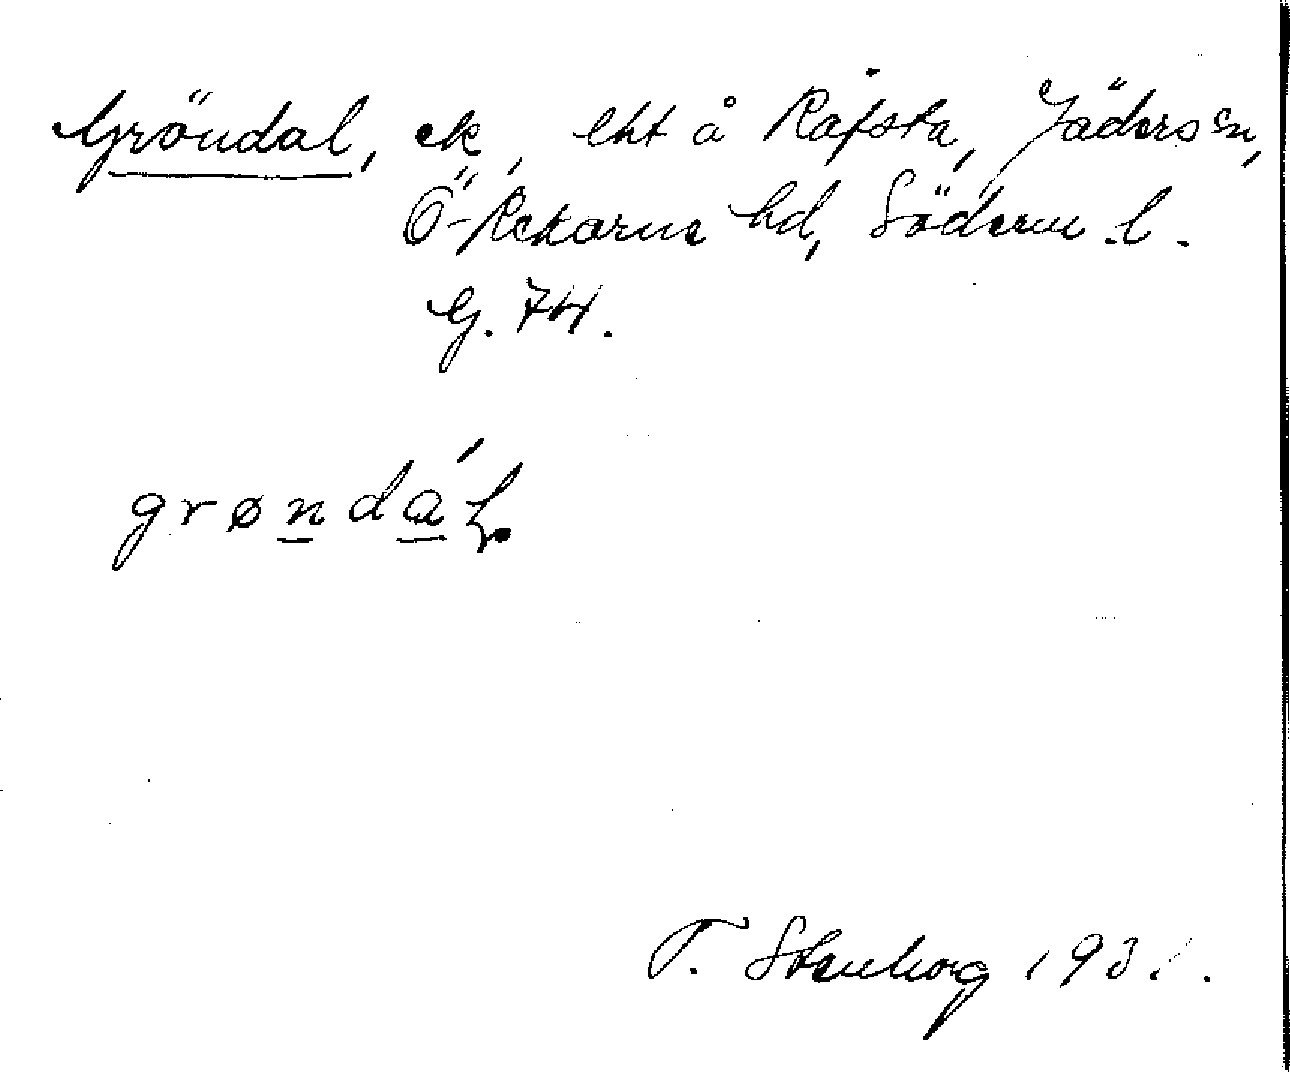 Gröndal, ek, lht å Råfsta, Jäders sn,
Ö-Rekarne hd, Söderm. l.
G. 74.
grøndál.
T. Stenborg 1931.